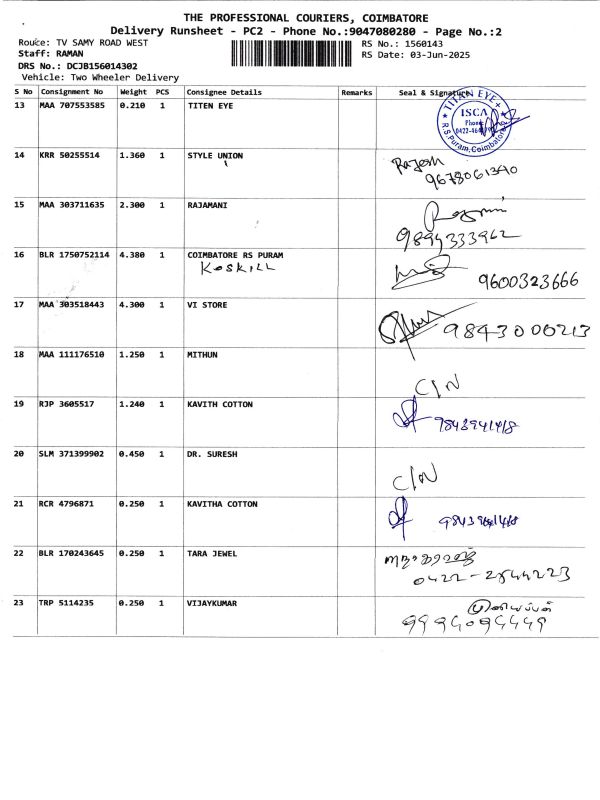 THE PROFESSIONAL COURIERS, COIMBATORE
Delivery Runsheet - PC2 - Phone No.:9047080280 - Page No.:2
Route: TV SAMY ROAD WEST
RS No.: 1560143
Staff: RAMAN
RS Date: 03-Jun-2025
DRS No.: DCJB156014302
Vehicle: Two Wheeler Delivery
S No Consignment No Weight PCS Consignee Details Remarks Seal & Signature
13 MAA 707553585 0.210 1 TITEN EYE
TITAN EYE+
ISCA
Phone
R.S.Puram, Coimbatore
14 KRR 50255514 1.360 1 STYLE UNION
Rajesh
9678061340
15 MAA 303711635 2.300 1 RAJAMANI
9894333962
16 BLR 1750752114 4.380 1 COIMBATORE RS PURAM
KOSKILL
9600323666
17 MAA 303518443 4.300 1 VI STORE
9843000213
18 MAA 111176510 1.250 1 MITHUN
C/N
19 RJP 3605517 1.240 1 KAVITH COTTON
20 SLM 371399902 0.450 1 DR. SURESH
C/N
21 RCR 4796871 0.250 1 KAVITHA COTTON
22 BLR 170243645 0.250 1 TARA JEWEL
0422-2544223
23 TRP 5114235 0.250 1 VIJAYKUMAR